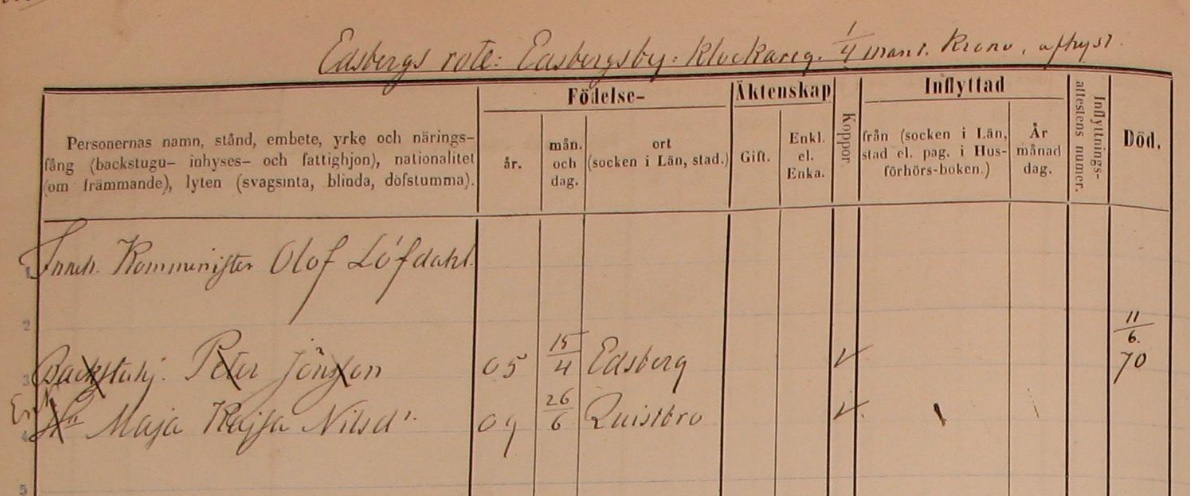 Edsbergs rote: Edsbergsby: Klockareg. 1/4 mant. Krono, afhyst.
Födelse- Äktenskap Koppor. Inflyttad Inflyttnings-attestens numer. Död.
Personernas namn, stånd, embete, yrke och närings-
fång (backstugu- inhyses- och fattighjon), nationalitet
(om främmande), lyten (svagsinta, blinda, döfstumma).
år.
mån.
och
dag.
ort
(socken i Län, stad.)
Gift.
Enkl.
el.
Enka.
från (socken i Län,
stad el. pag. i Hus-
förhörs-boken.)
År
månad
dag.
1 Inneh. Komminister Olof Löfdahl.
2
3 Backstuhj. Peter Jönsson 05 15/4 Edsberg 11/6. 70
Enk
4 Hu Maja Kajsa Nilsdr. 09 26/6 Quistbro
5